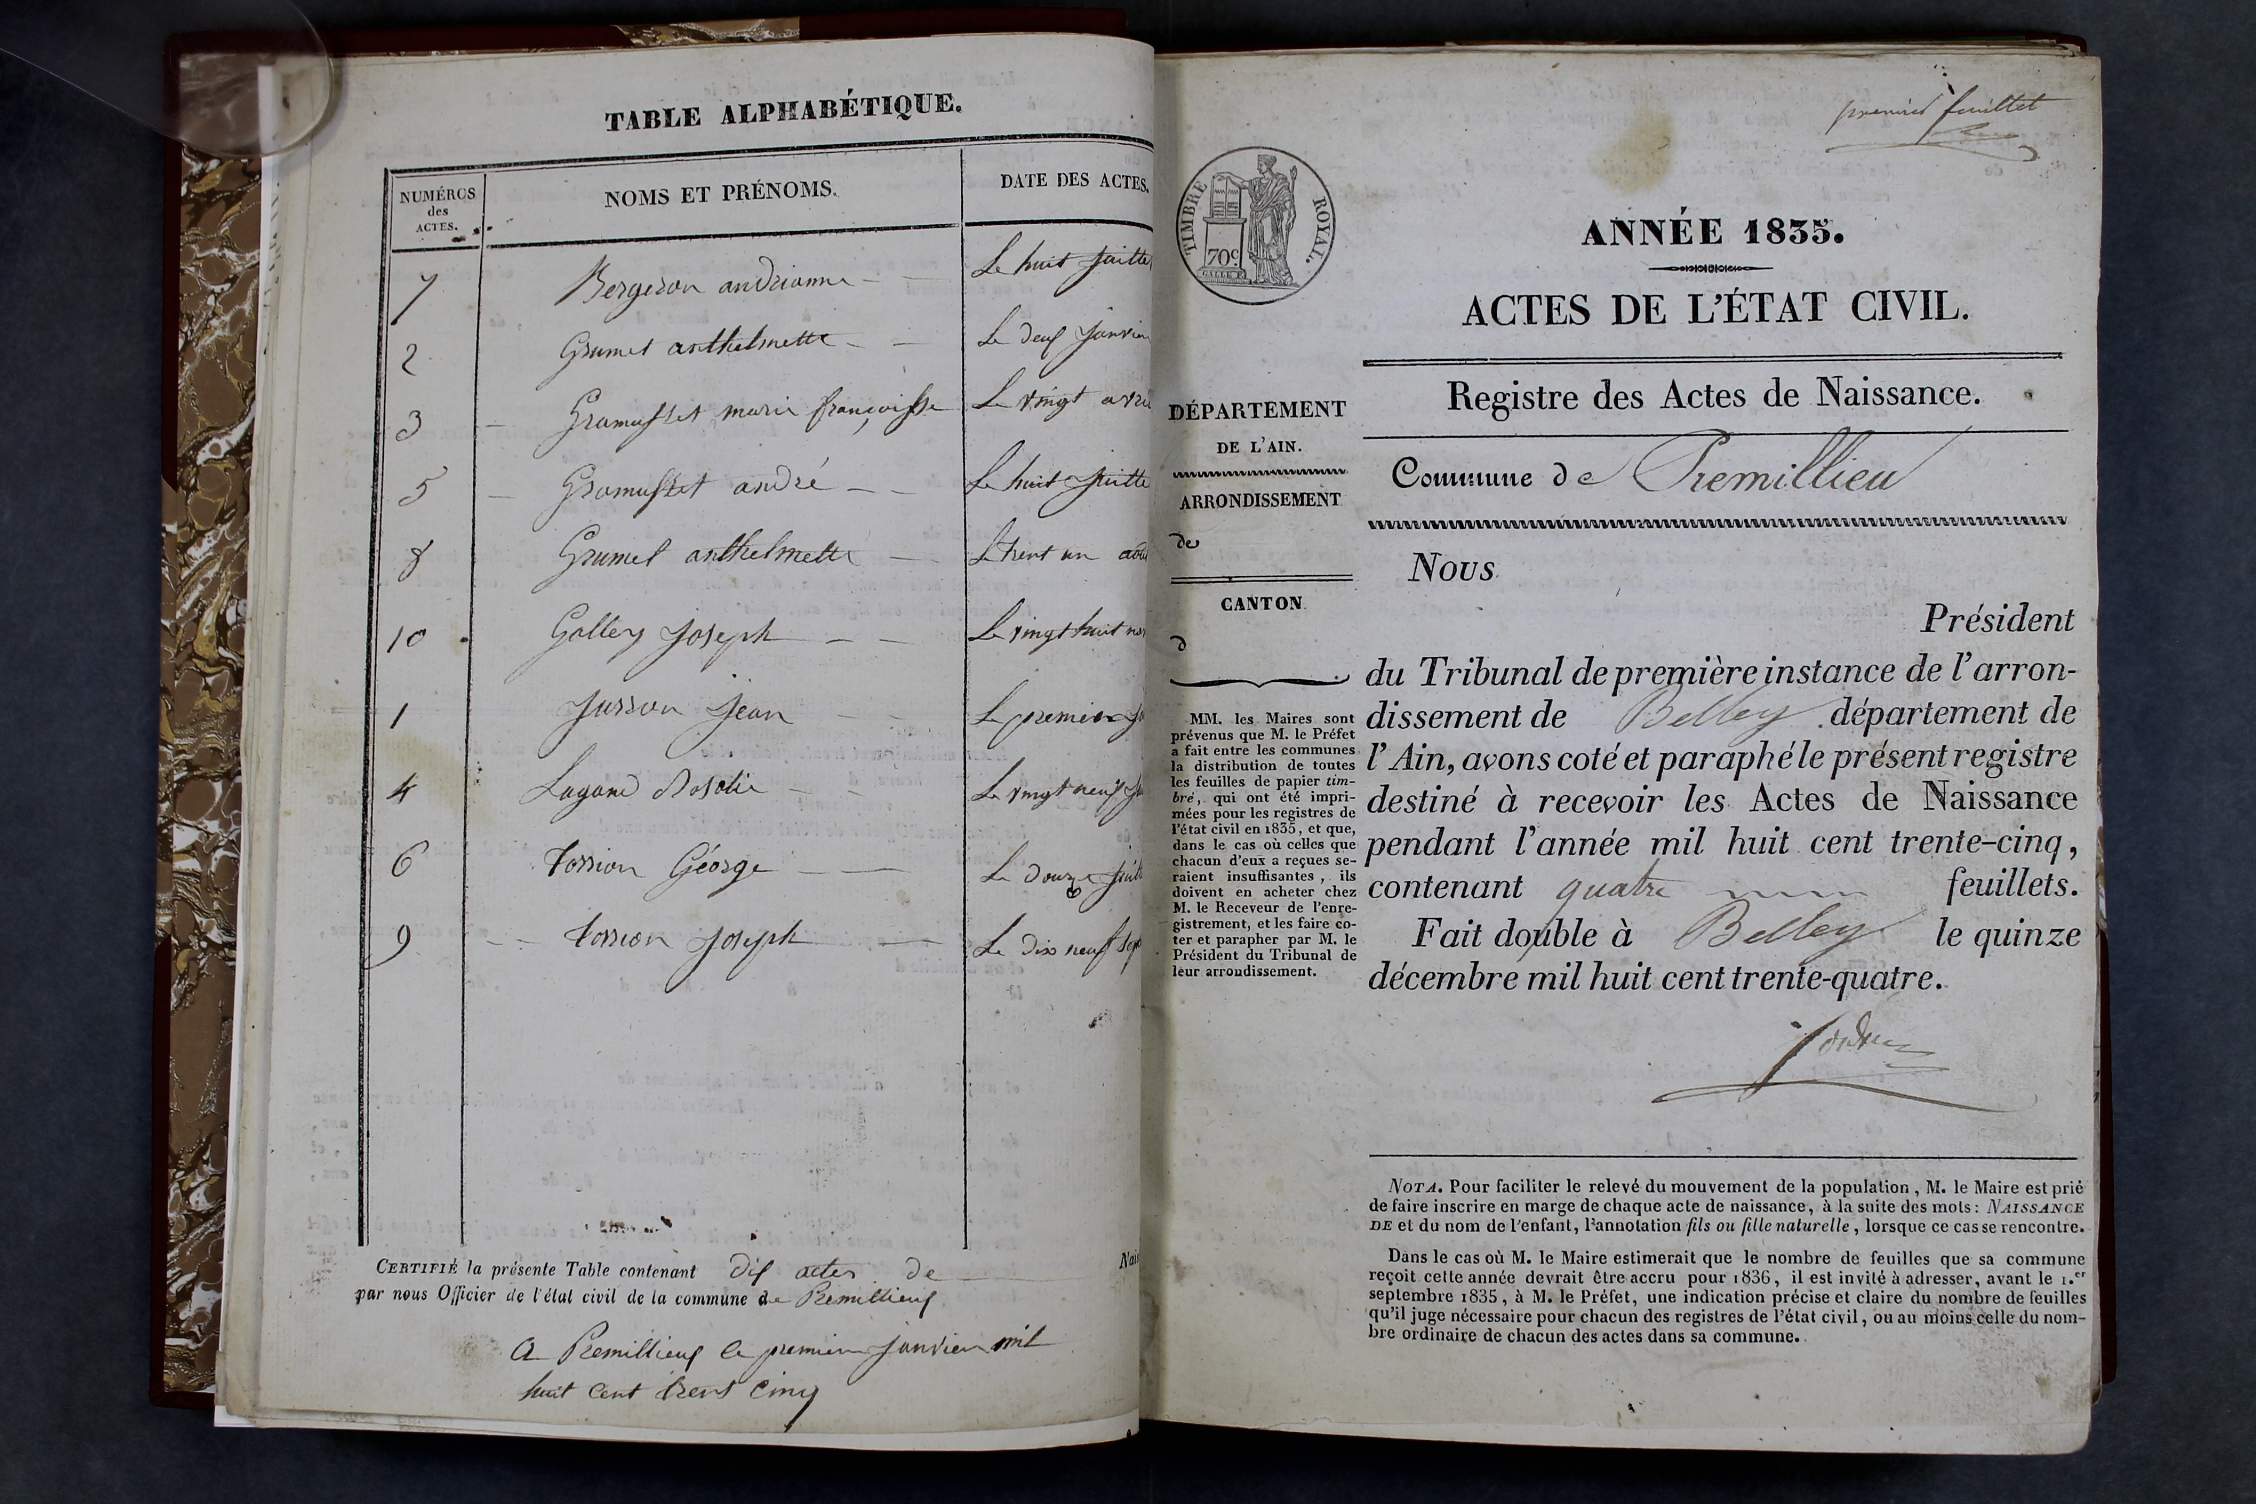 TABLE ALPHABÉTIQUE.
NUMÉROS
des
ACTES.
NOMS ET PRÉNOMS.
DATE DES ACTES.
7 Bergeron andrianne Le huit Juillet
2 Grumet anthelmette Le deux Janvier
3 Gramusset marie françoisse Le vingt avril
5 Gramusset andré Le huit Juillet
8 Grumet anthelmette Le trent un août
10 Galley Joseph Le vingt huit nov
1 Jusson Jean Le premier Ja
4 Lagane Rosalie Le vingt neuf Jui
6 Torrion Géorge Le douze Juill
9 Torrion Joseph Le dix neuf Sep
CERTIFIÉ la présente Table contenant dix actes de Nais
par nous Officier de l'état civil de la commune de Premillieux
a Premillieux le premier Janvier mil
huit cent trent cinq
premier feuillet
TIMBRE ROYAL.
70c.
ANNÉE 1835.
ACTES DE L'ÉTAT CIVIL.
Registre des Actes de Naissance.
Commune de Premillieu
DÉPARTEMENT
DE L'AIN.
ARRONDISSEMENT
de
CANTON
d
MM. les Maires sont
prévenus que M. le Préfet
a fait entre les communes
la distribution de toutes
les feuilles de papier tim-
bré, qui ont été impri-
mées pour les registres de
l'état civil en 1835, et que,
dans le cas où celles que
chacun d'eux a reçues se-
raient insuffisantes, ils
doivent en acheter chez
M. le Receveur de l'enre-
gistrement, et les faire co-
ter et parapher par M. le
Président du Tribunal de
leur arrondissement.
Nous
Président
du Tribunal de première instance de l'arron-
dissement de Belley département de
l'Ain, avons coté et paraphé le présent registre
destiné à recevoir les Actes de Naissance
pendant l'année mil huit cent trente-cinq,
contenant quatre feuillets.
Fait double à Belley le quinze
décembre mil huit cent trente-quatre.
NOTA. Pour faciliter le relevé du mouvement de la population, M. le Maire est prié
de faire inscrire en marge de chaque acte de naissance, à la suite des mots: NAISSANCE
DE et du nom de l'enfant, l'annotation fils ou fille naturelle, lorsque ce cas se rencontre.
Dans le cas où M. le Maire estimerait que le nombre de feuilles que sa commune
reçoit cette année devrait être accru pour 1836, il est invité à adresser, avant le 1.er
septembre 1835, à M. le Préfet, une indication précise et claire du nombre de feuilles
qu'il juge nécessaire pour chacun des registres de l'état civil, ou au moins celle du nom-
bre ordinaire de chacun des actes dans sa commune.